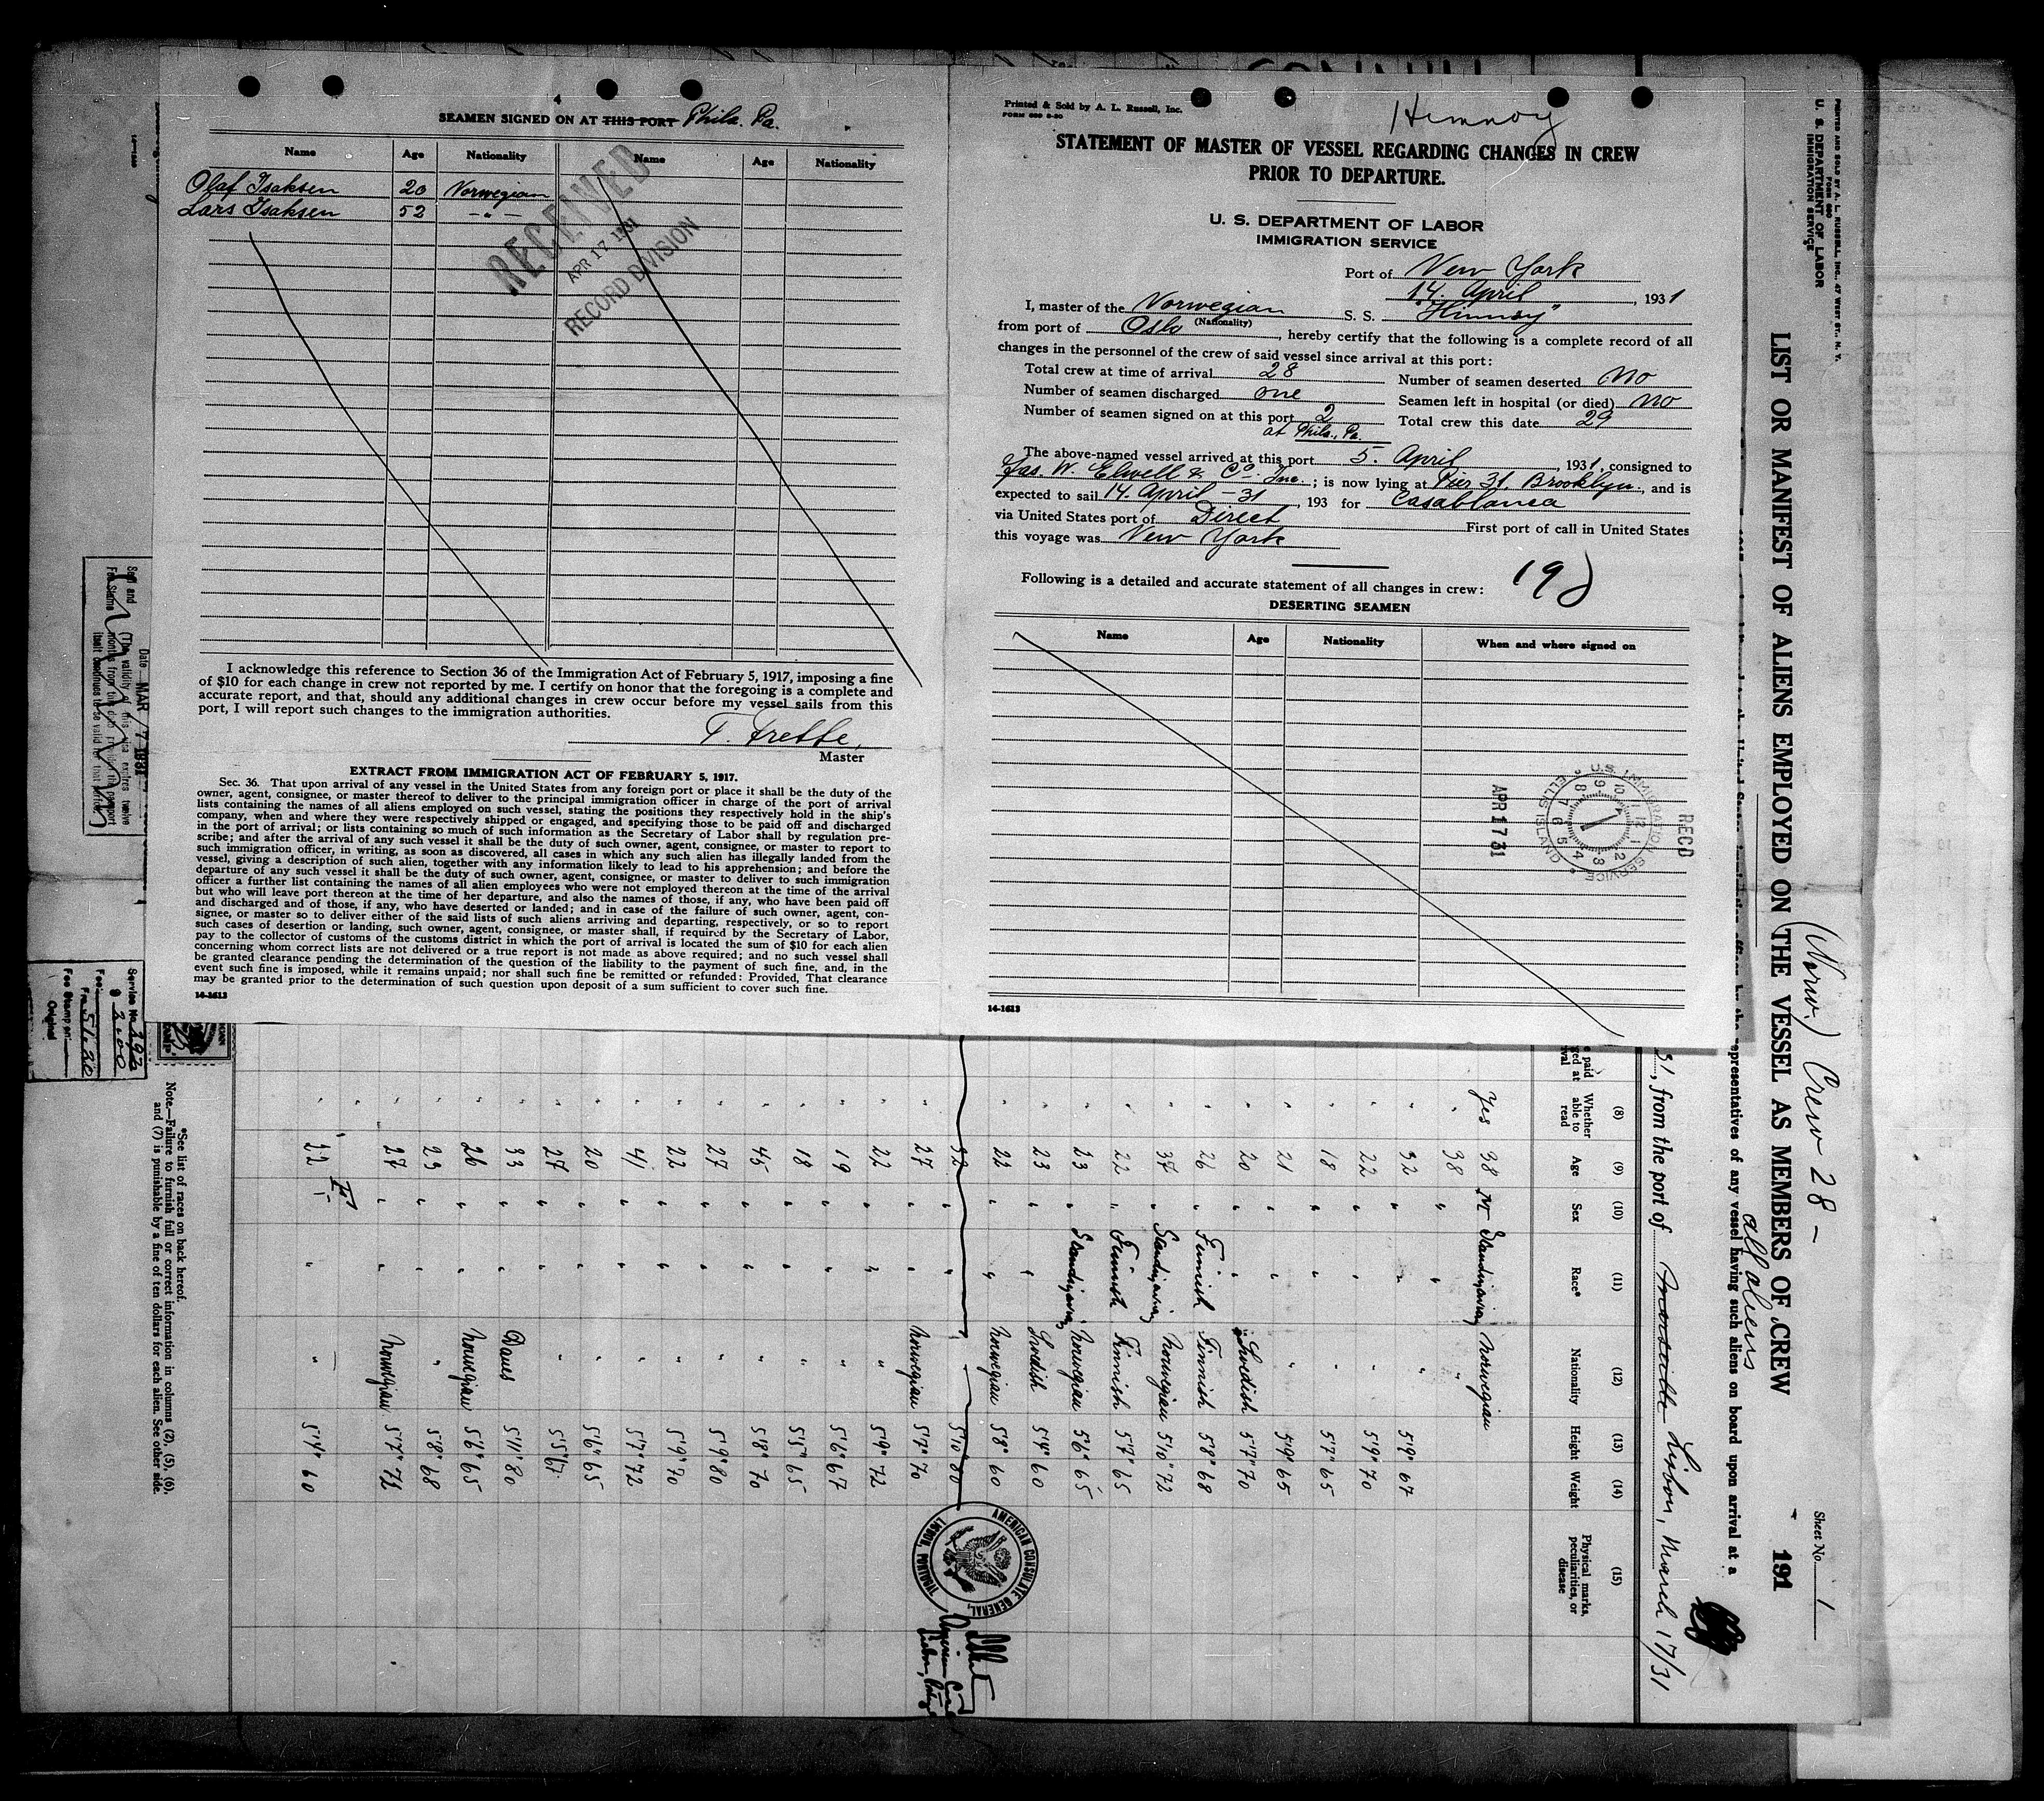 4
SEAMEN SIGNED ON AT THIS PORT Phila. Pa.
Name Age Nationality Name Age Nationality
Olaf Isaksen 20 Norwegian
Lars Isaksen 52 -"-
RECEIVED
APR 17 1931
RECORD DIVISION
I acknowledge this reference to Section 36 of the Immigration Act of February 5, 1917, imposing a fine
of $10 for each change in crew not reported by me. I certify on honor that the foregoing is a complete and
accurate report, and that, should any additional changes in crew occur before my vessel sails from this
port, I will report such changes to the immigration authorities.
T. Frette,
Master
EXTRACT FROM IMMIGRATION ACT OF FEBRUARY 5, 1917.
Sec. 36. That upon arrival of any vessel in the United States from any foreign port or place it shall be the duty of the
owner, agent, consignee, or master thereof to deliver to the principal immigration officer in charge of the port of arrival
lists containing the names of all aliens employed on such vessel, stating the positions they respectively hold in the ship's
company, when and where they were respectively shipped or engaged, and specifying those to be paid off and discharged
in the port of arrival; or lists containing so much of such information as the Secretary of Labor shall by regulation pre-
scribe; and after the arrival of any such vessel it shall be the duty of such owner, agent, consignee, or master to report to
such immigration officer, in writing, as soon as discovered, all cases in which any such alien has illegally landed from the
vessel, giving a description of such alien, together with any information likely to lead to his apprehension; and before the
departure of any such vessel it shall be the duty of such owner, agent, consignee, or master to deliver to such immigration
officer a further list containing the names of all alien employees who were not employed thereon at the time of the arrival
but who will leave port thereon at the time of her departure, and also the names of those, if any, who have been paid off
and discharged and of those, if any, who have deserted or landed; and in case of the failure of such owner, agent, con-
signee, or master so to deliver either of the said lists of such aliens arriving and departing, respectively, or so to report
such cases of desertion or landing, such owner, agent, consignee, or master shall, if required by the Secretary of Labor,
pay to the collector of customs of the customs district in which the port of arrival is located the sum of $10 for each alien
concerning whom correct lists are not delivered or a true report is not made as above required; and no such vessel shall
be granted clearance pending the determination of the question of the liability to the payment of such fine, and, in the
event such fine is imposed, while it remains unpaid; nor shall such fine be remitted or refunded: Provided, That clearance
may be granted prior to the determination of such question upon deposit of a sum sufficient to cover such fine.
14-1613
Printed & Sold by A. L. Russell, Inc.
FORM 689 8-30
Himnoy
STATEMENT OF MASTER OF VESSEL REGARDING CHANGES IN CREW
PRIOR TO DEPARTURE.
U. S. DEPARTMENT OF LABOR
IMMIGRATION SERVICE
Port of New York
14. April, 1931
I, master of the Norwegian S. S. "Himnoy"
(Nationality)
from port of Oslo, hereby certify that the following is a complete record of all
changes in the personnel of the crew of said vessel since arrival at this port:
Total crew at time of arrival 28 Number of seamen deserted no
Number of seamen discharged one Seamen left in hospital (or died) no
Number of seamen signed on at this port 2 Total crew this date 29
at Phila., Pa.
The above-named vessel arrived at this port 5. April, 1931, consigned to
Jas. W. Elwell & Co. Inc.; is now lying at Pier 31. Brooklyn, and is
expected to sail 14. April - 31, 193 for Casablanca
via United States port of Direct First port of call in United States
this voyage was New York
Following is a detailed and accurate statement of all changes in crew:
DESERTING SEAMEN
Name Age Nationality When and where signed on
RECD
U. S. IMMIGRATION SERVICE ELLIS ISLAND
APR 17 31
14-1613
PRINTED AND SOLD BY A. L. RUSSELL, INC., 47 WEST ST., N. Y.
Form 680
U. S. DEPARTMENT OF LABOR
IMMIGRATION SERVICE
(Norw.) Crew 28 -
Sheet No. 1
LIST OR MANIFEST OF ALIENS EMPLOYED ON THE VESSEL AS MEMBERS OF CREW
191
all aliens
representatives of any vessel having such aliens on board upon arrival at a
31, from the port of Marseille Lisbon, March 17/31
(8) (9) (10) (11) (12) (13) (14) (15)
Whether able to read Age Sex Race* Nationality Height Weight Physical marks, peculiarities, or disease
Yes 38 M Scandinavian Norwegian
" 38 " " "
" 32 " " " 5'9" 67
" 22 " " " 5'9" 70
" 18 " " " 5'7" 65
" 21 " " " 5'9" 65
" 20 " " Swedish 5'7" 70
" 26 " Finnish Finnish 5'8" 68
" 37 " Scandinavian Norwegian 5'10" 72
" 22 " Finnish Finnish 5'7" 65
" 23 " Scandinavian Norwegian 5'6" 65
" 23 " " Swedish 5'4" 60
" 22 " " Norwegian 5'8" 60
32 " " 5'10" 80
" 27 " " Norwegian 5'7" 70
" 22 " " " 5'9" 72
" 19 " " " 5'6" 67
" 18 " " " 5'5" 65
" 45 " " " 5'8" 70
" 27 " " " 5'9" 80
" 22 " " " 5'9" 70
" 41 " " " 5'7" 72
" 20 " " " 5'6" 65
" 27 " " " 5'5" 67
" 33 " " Danes 5'11" 80
" 26 " " Norwegian 5'6" 65
" 23 " " " 5'8" 68
" 27 " " Norwegian 5'7" 72
" 22 " " 5'4" 60
AMERICAN CONSULATE GENERAL,
LISBON, PORTUGAL
*See list of races on back hereof.
Note.—Failure to furnish full or correct information in columns (2), (5), (6),
and (7) is punishable by a fine of ten dollars for each alien. See other side.
Date MAR 17 1931
Seal and
Fee Stamp
(The validity of this visa expires twelve
months from this date provided the passport
itself continues to be valid for that period)
Service No. 392
Fee: $ 2.00
Fee Stamp on
Original